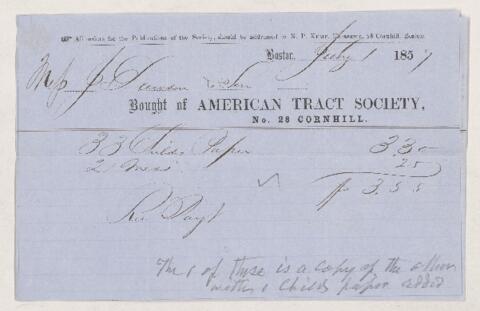 All orders for the Publications of the Society, should be addressed to N. P. Kemp, Treasurer, 28 Cornhill, Boston.
Boston, July 1 1857
J & Son
Bought of AMERICAN TRACT SOCIETY,
No. 28 CORNHILL.
33 Childs Paper 3 30
2 Mess 25
3.55
Rec Payt
The 1 of these is a copy of the other
with 1 Childs paper added